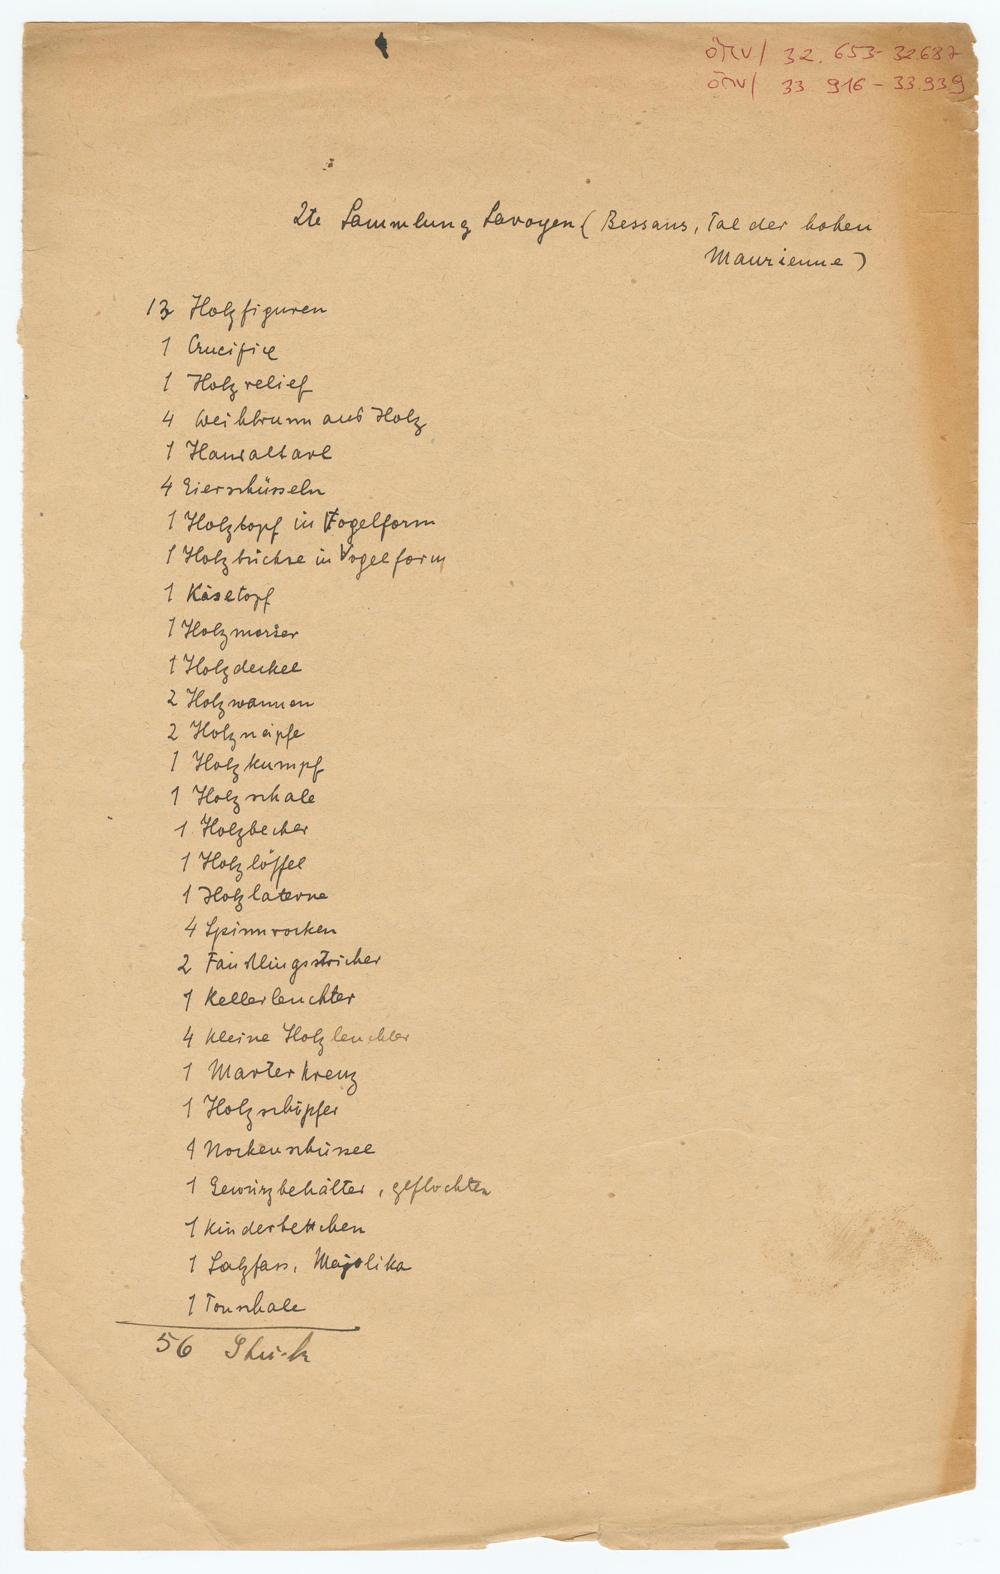 ÖMV/ 32.653-32687
ÖMV/ 33 916-33.939
2te Sammlung Savoyen (Bessans, Tal der hohen
Maurienne)
13 Holzfiguren
1 Crucifix
1 Holzrelief
4 Weihbrunn aus Holz
1 Hausaltarl
4 Eierschüsseln
1 Holztopf in Vogelform
1 Holzbüchse in Vogelform
1 Käsetopf
1 Holzmörser
1 Holzdeckel
2 Holzwannen
2 Holznäpfe
1 Holzkumpf
1 Holzschale
1 Holzbecher
1 Holzlöffel
1 Holzlaterne
4 Spinnrocken
2
1 Kellerleuchter
4 kleine Holzleuchter
1 Marterkreuz
1 Holzschöpfer
1 Nockenschüssel
1 Gewürzbehälter, geflochten
1 Kinderbettchen
1 Salzfass, Majolika
1 Tonschale
56 Stück